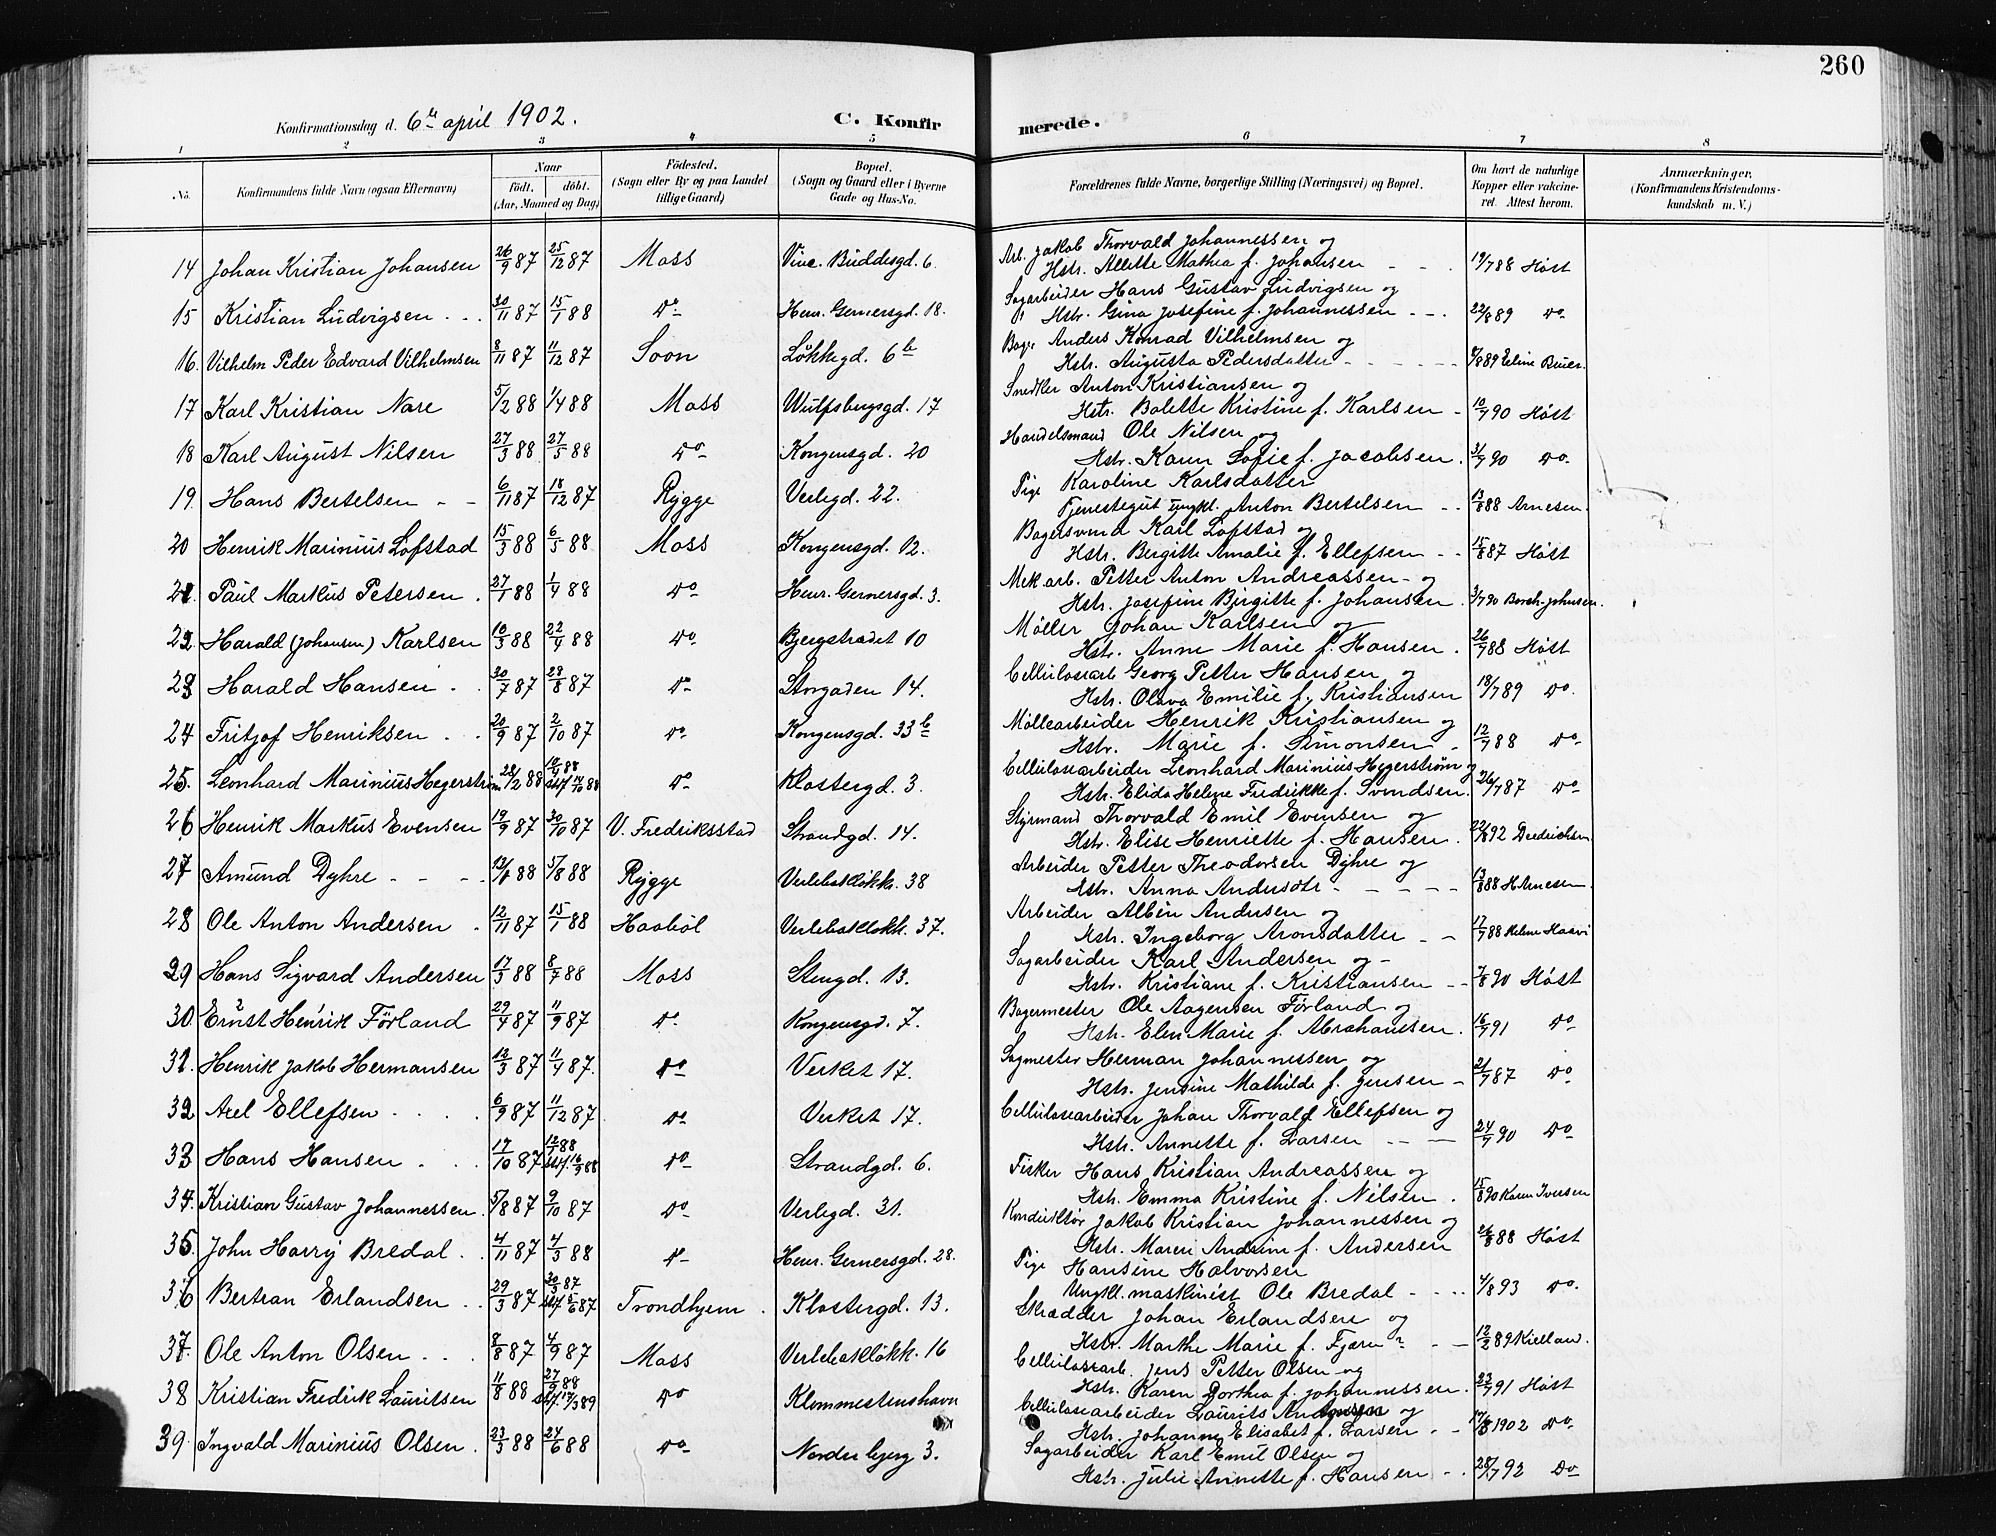 260
Konfirmationsdag d. 6te april 1902. C. Konfirmerede.
1 2 3 4 5 6 7 8
No. Konfirmandens fulde Navn (ogsaa Efternavn) Naar födt. döbt. (Aar, Maaned og Dag) Födested. (Sogn eller By og paa Landet tillige Gaard) Bopæl. (Sogn og Gaard eller i Byerne Gade og Hus-No. Forældrenes fulde Navne, borgerlige Stilling (Næringsvei) og Bopæl. Om havt de naturlige Kopper eller vakcineret. Attest herom. Anmærkninger. (Konfirmandens Kristendomskundskab m. V.)
14 Johan Kristian Johansen 26/9 87 25/12 87 Moss Vinc. Buddesgd. 6. Arb. Jakob Thorvald Johannessen og
Hstr. Allette Mathea f. Johansen - - 19/7 88 Höst
15 Kristian Ludvigsen 30/11 87 15/1 88 Do Henr. Gernersgd. 18. Sagarbeider Hans Gustav Ludvigsen og
Hstr. Gina Josefine f. Johannessen - - 22/8 89 Do
16. Vilhelm Peder Edvard Vilhelmsen 8/11 87 11/12 87 Soon Løkkegd. 6b Bager Anders Konrad Vilhelmsen og
Hstr. Augusta Pedersdatter - - - 89 Eline Buer.
17 Karl Kristian Nare 5/2 88 1/4 88 Moss Wulfsbergsgd. 17 Snedker Anton Kristiansen og
Hstr. Bolette Kristine f. Karlsen - 10/7 90 Höst
18 Karl August Nilsen 27/3 88 27/5 88 Do Kongensgd. 20 Handelsmand Ole Nilsen og
Hstr. Karen Sofie f. Jacobsen. 3/7 90 Do
19. Hans Bertelsen - - 6/11 87 18/12 87 Rygge Verlegd. 22. Pige Karoline Karlsdatter
Tjenestegut ungkl. Anton Bertelsen - 13/8 88 Arnesen.
20 Henrik Marinius Lofstad 15/3 88 6/5 88 Moss Kongensgd. 12. Bagersvend Karl Lofstad og
Hstr. Bergitte Amalie f. Ellefsen - - 15/8 87 Höst
21. Paul Markus Petersen 27/1 88 1/4 88 Do Henr. Gernersgd. 3. Mek.arb. Petter Anton Andreassen - og
Hstr. Josefine Birgitte f. Johansen. 3/7 90 Borch-Johnsen.
22. Harald (Johansen) Karlsen 10/3 88 22/4 88 Do Bjergstrædet 10 Møller Johan Karlsen og
Hstr. Anne Marie f. Hansen. 26/7 88 Höst
23 Harald Hansen 30/7 87 28/8 87 Do Storgaden 14. Cellulosearb Georg Petter Hansen og
Hstr. Olava Emilie f. Kristiansen 18/7 89 Do.
24 Fritjof Henriksen 20/9 87 2/10 87 Do Kongensgd. 33b Møllearbeider Henrik Kristiansen og
Hstr. Marie f. Simonsen - 12/7 88 Do
25. Leonhard Marinius Hegerström 28/2 88 10/4 88 Do Klostergd. 3. Cellulosearbeider Leonhard Marinius Hegerstrøm og
Hstr. Elida Helene Fredrikke f. Svendsen. 26/7 87 Do
26 Henrik Markus Evensen 19/9 87 30/10 87 V. Fredriksstad Strandgd. 14. Styrmand Thorvald Emil Evensen og
Hstr. Elise Henriette f. Hansen. 22/8 92 Diedrichsen
27 Amund Dyhre - - - 88 5/8 88 Rygge Verlebakløkk. 38 Arbeider Petter Theodorsen Dyhre og
Hstr. Anna Andersdtr - - - - 13/8 88 H. Arnesen.
28 Ole Anton Andersen 12/11 87 15/1 88 Haaböl Verlebakløkk. 37. Arbeider Albin Andersen og
Hstr. Ingeborg Aronsdatter - - 17/7 88 Helene Haavi
29 Hans Sigvard Andersen 17/3 88 8/7 88 Moss Stengd. 13. Sagarbeider Karl Andersen og -
Hstr. Kristiane f. Kristiansen - - 7/8 90 Höst
30. Ernst Henrik Förland 29/4 87 11/9 87 Do Kongensgd. 7. Bagermester Ole Aagensen Förland og
Hstr. Elen Marie f. Abrahamsen. 16/7 91 Do
31. Henrik Jakob Hermansen 12/3 87 11/4 87. Do Verket 17. Sagmester Herman Johannessen og
Hstr. Jensine Mathilde f. Jensen - 21/7 87 Do
32 Axel Ellefsen 6/9 87 11/12 87 Do Verket 17. Cellulosearbeider Johan Thorvald Ellefsen og
Hstr. Annette f. Larsen - - 24/7 90 Do
33 Hans Hansen 17/10 87 88 Do Strandgd. 6. Fisker Hans Kristian Andreassen og
Hstr. Emma Kristine f. Nilsen. 15/8 90 Karen Iversen
34. Kristian Gustav Johannessen. 5/8 87 9/10 87 Do Verlegd. 31. Konduktør Jakob Kristian Johannessen og
Hstr. Maren Andrine f. Andersen 26/8 88 Höst
35 John Harry Bredal 4/11 87 4/3 88 Do Henr. Gernersgd. 28. Pige Hansine Halvorsen
Ungkl. maskinist Ole Bredal - - 4/8 93 Do.
36 Bertran Erlandsen 29/3 87 30/3 87 Trondhjem Klostergd. 13. Skrædder Johan Erlandsen og
Hstr. Marthe Marie f. Fjæren? - - 12/2 89 Kielland.
37. Ole Anton Olsen 8/8 87 4/9 87 Moss Verlebakløkk. 16 Cellulosearb. Jens Petter Olsen og
Hstr. Karen Dorthea f. Johannessen. 23/7 91 Höst
38 Kristian Fredrik Lauritsen 11/8 88 27/9 88 Do Klommestenshavn Cellulosearbeider Laurits og
Hstr. Johanne Elisabet f. Larsen - - 17/8 1902 Do
39. Ingvald Marinius Olsen. 23/3 88 24/6 88 Do Nordre bjerg 3. Sagarbeider Karl Emil Olsen og
Hstr. Julie Annette f. Hansen - - 28/7 92 Do